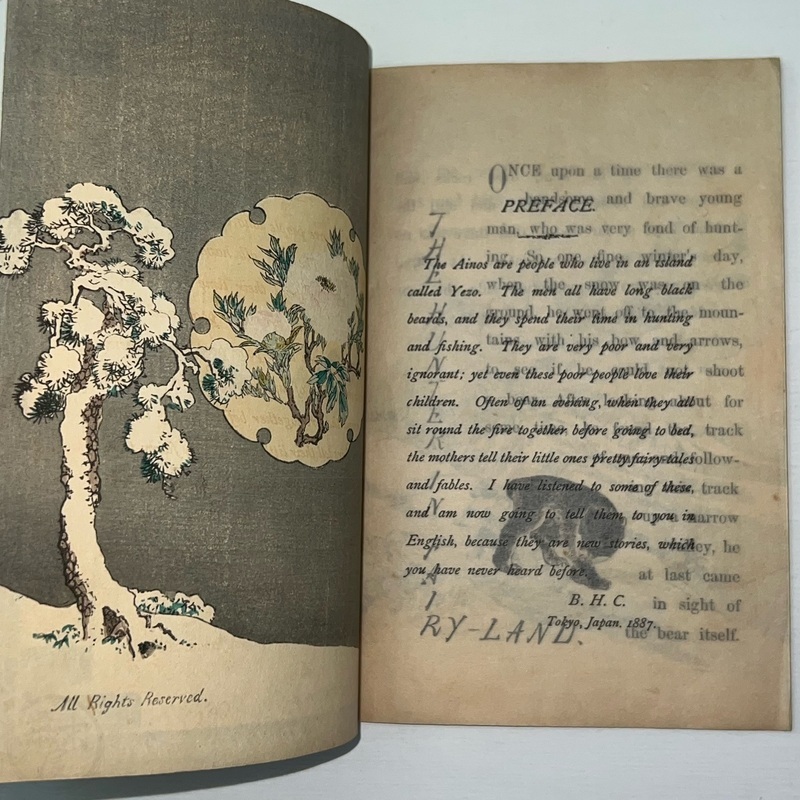 All Rights Reserved.
PREFACE.
The Ainos are people who live in an island
called Yezo. The men all have long black
beards, and they spend their time in hunting
and fishing. They are very poor and very
ignorant; yet even these poor people love their
children. Often of an evening, when they all
sit round the fire together before going to bed,
the mothers tell their little ones pretty fairy-tales
and fables. I have listened to some of these,
and am now going to tell them to you in
English, because they are new stories, which
you have never heard before.
B. H. C.
Tokyo, Japan. 1887.
ONCE upon a time there was a
handsome and brave young
man, who was very fond of hunt-
ing. So one fine winter's day,
when the snow was on the
ground he went off to the moun-
tains with his bow and arrows,
to see if he could not shoot
for
track
follow-
track
up a narrow
he
at last came
in sight of
the bear itself.
THE HUNTER IN FAI
RY-LAND.